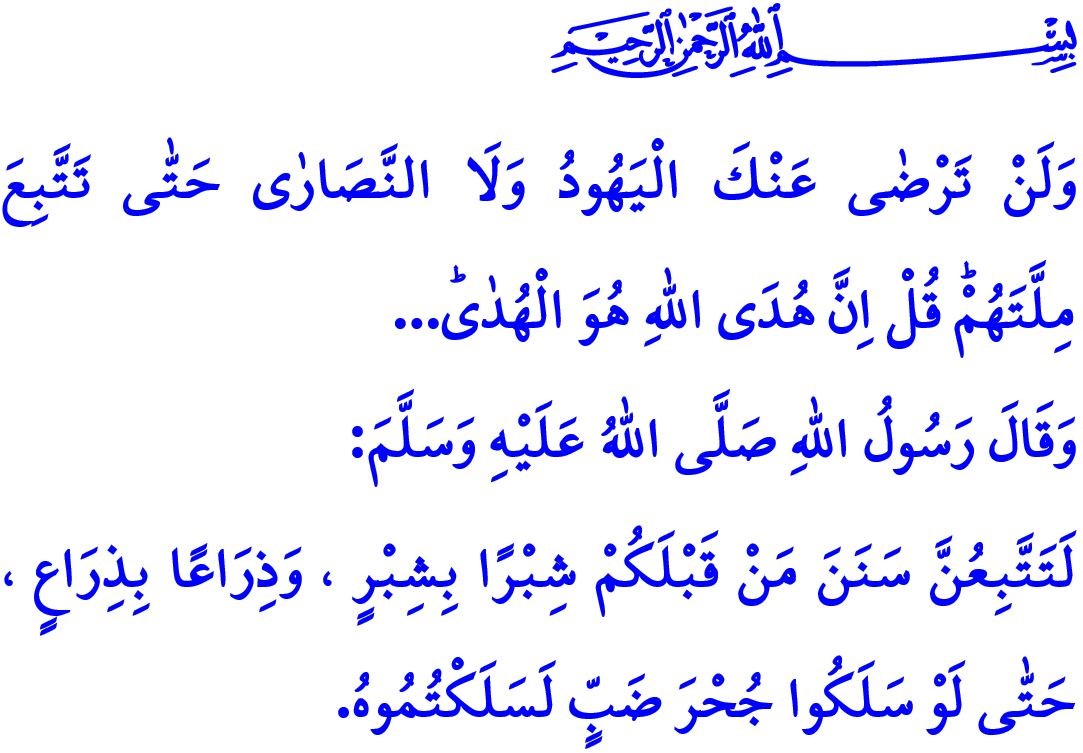 بِسْمِ اللّٰهِ الرَّحْمٰنِ الرَّحِيمِ
وَلَنْ تَرْضٰى عَنْكَ الْيَهُودُ وَلَا النَّصَارٰى حَتّٰى تَتَّبِعَ
مِلَّتَهُمْۜ قُلْ اِنَّ هُدَى اللّٰهِ هُوَ الْهُدٰىۜ...
وَقَالَ رَسُولُ اللّٰهِ صَلَّى اللّٰهُ عَلَيْهِ وَسَلَّمَ:
لَتَتَّبِعُنَّ سَنَنَ مَنْ قَبْلَكُمْ شِبْرًا بِشِبْرٍ ، وَذِرَاعًا بِذِرَاعٍ ،
حَتّٰى لَوْ سَلَكُوا جُحْرَ ضَبٍّ لَسَلَكْتُمُوهُ.